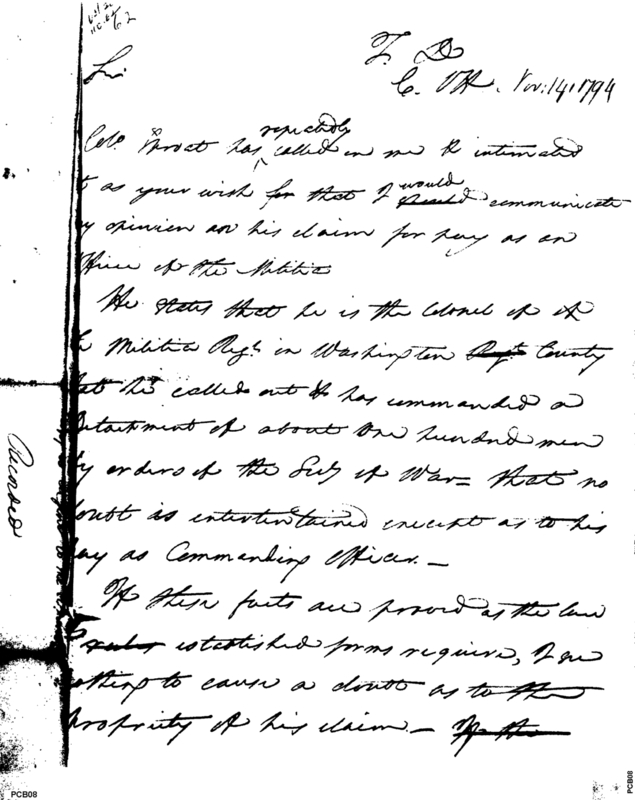 62
T. D
C. Off. Nov: 14. 1794
Sir
Colo. has repeatedly called on me & intimated
t as your wish for that I would communicate
y opinion on his claim for pay as an
fficer of the Militia
He states that he is the Colonel of
Militia Regt. in Washington Regt. County
he called out & has commanded a
etachment of about one hundred men
y orders of the Secy of War = that no
oubt is entertained except as to his
ay as Commanding Officer. —
If these facts are proved as the law
& rules established forms require, I see
othing to cause a doubt as to the
propriety of his claim — If the
Recorded
PCB08
PCB08